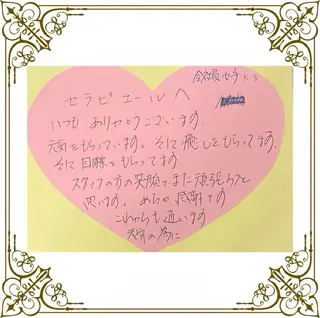 K.S
セラピエールへ
いつも ありがとうございます。
元気をもらっています。そして癒しをもらってます。
そして目標をもらってます。
スタッフの方の笑顔でまた頑張ろうと
思います。めちゃ感謝です
これからも通います
元気の為に